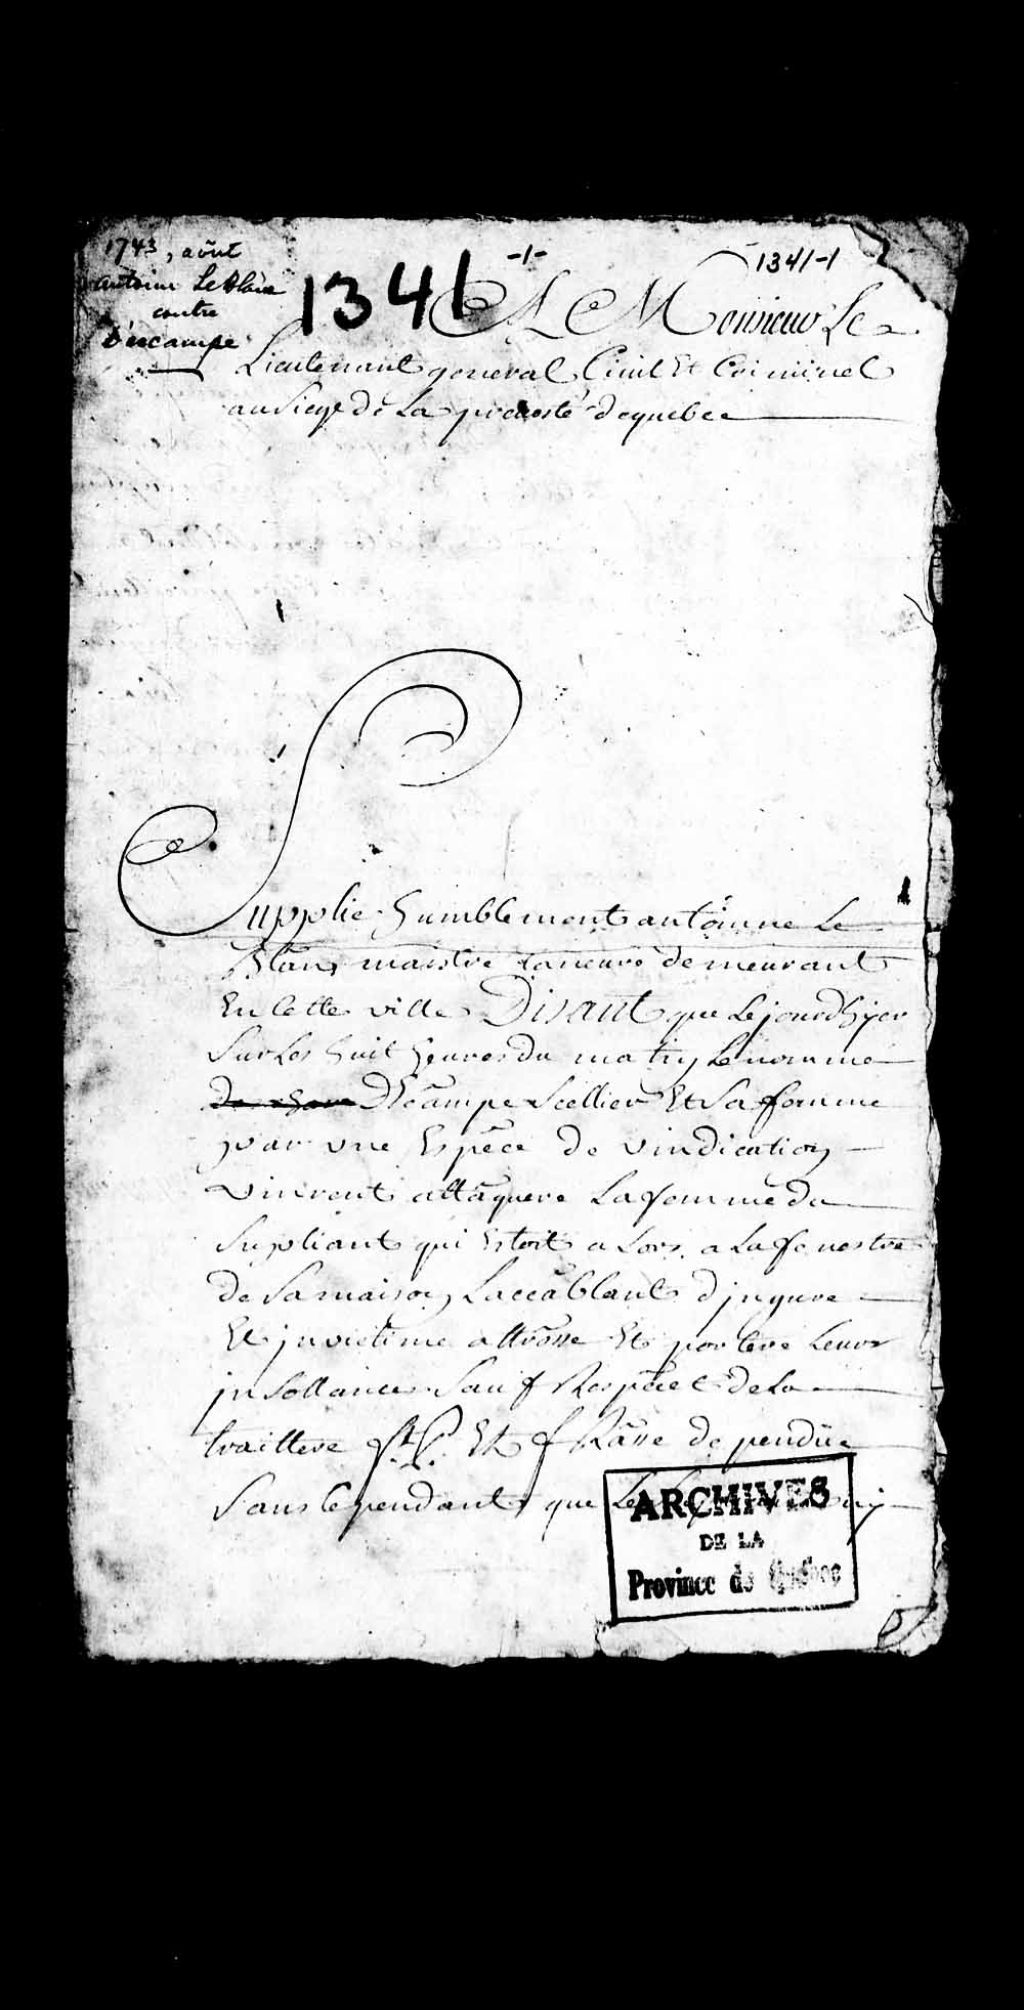 1743, aôut
antoine Leblanc
contre
Décampe
1341
-1-
1341-1
A Monsieur Le
Lieutenant general Civil Et Criminel
au Siege de La prevosté de quebec
Supplie humblement antoinne Le
Blanc maistre taneure demeurant
En Cette ville Disant que Le jourdhyer
Sur Les huit heures du matin Le nommé
Décampe Scellier Et Sa femme
par une Espéce de vindication
vinrent attaquere La femme du
Supliant qui Estoit a Lors a La fenestre
de Sa maison Laccablant d'injure
Et invictime attrosse Et portere Leurs
insollance Sauf Respéct de La
traittere f P. Et f Rasse de pendüe
Sans Cependant que Le
ARCHIVES
DE LA
Province de Québec